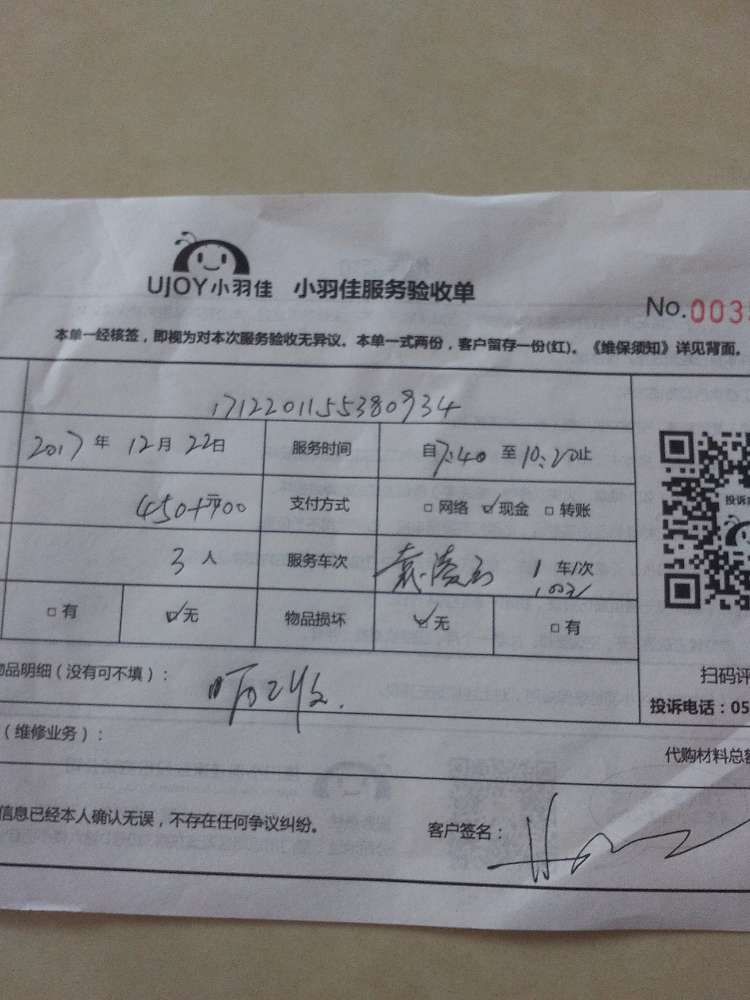 UJOY小羽佳 小羽佳服务验收单
No.003
本单一经核签，即视为对本次服务验收无异议。本单一式两份，客户留存一份(红)。《维保须知》详见背面。
1712201155380934
2017年 12月 22日 服务时间 自7:40 至10:20止
支付方式 □网络 ☑现金 □转账
投诉
3人 服务车次 1车/次
□有 ☑无 物品损坏 ☑无 □有
物品明细（没有可不填）：
扫码评
投诉电话：05
（维修业务）：
代购材料总
信息已经本人确认无误，不存在任何争议纠纷。 客户签名：